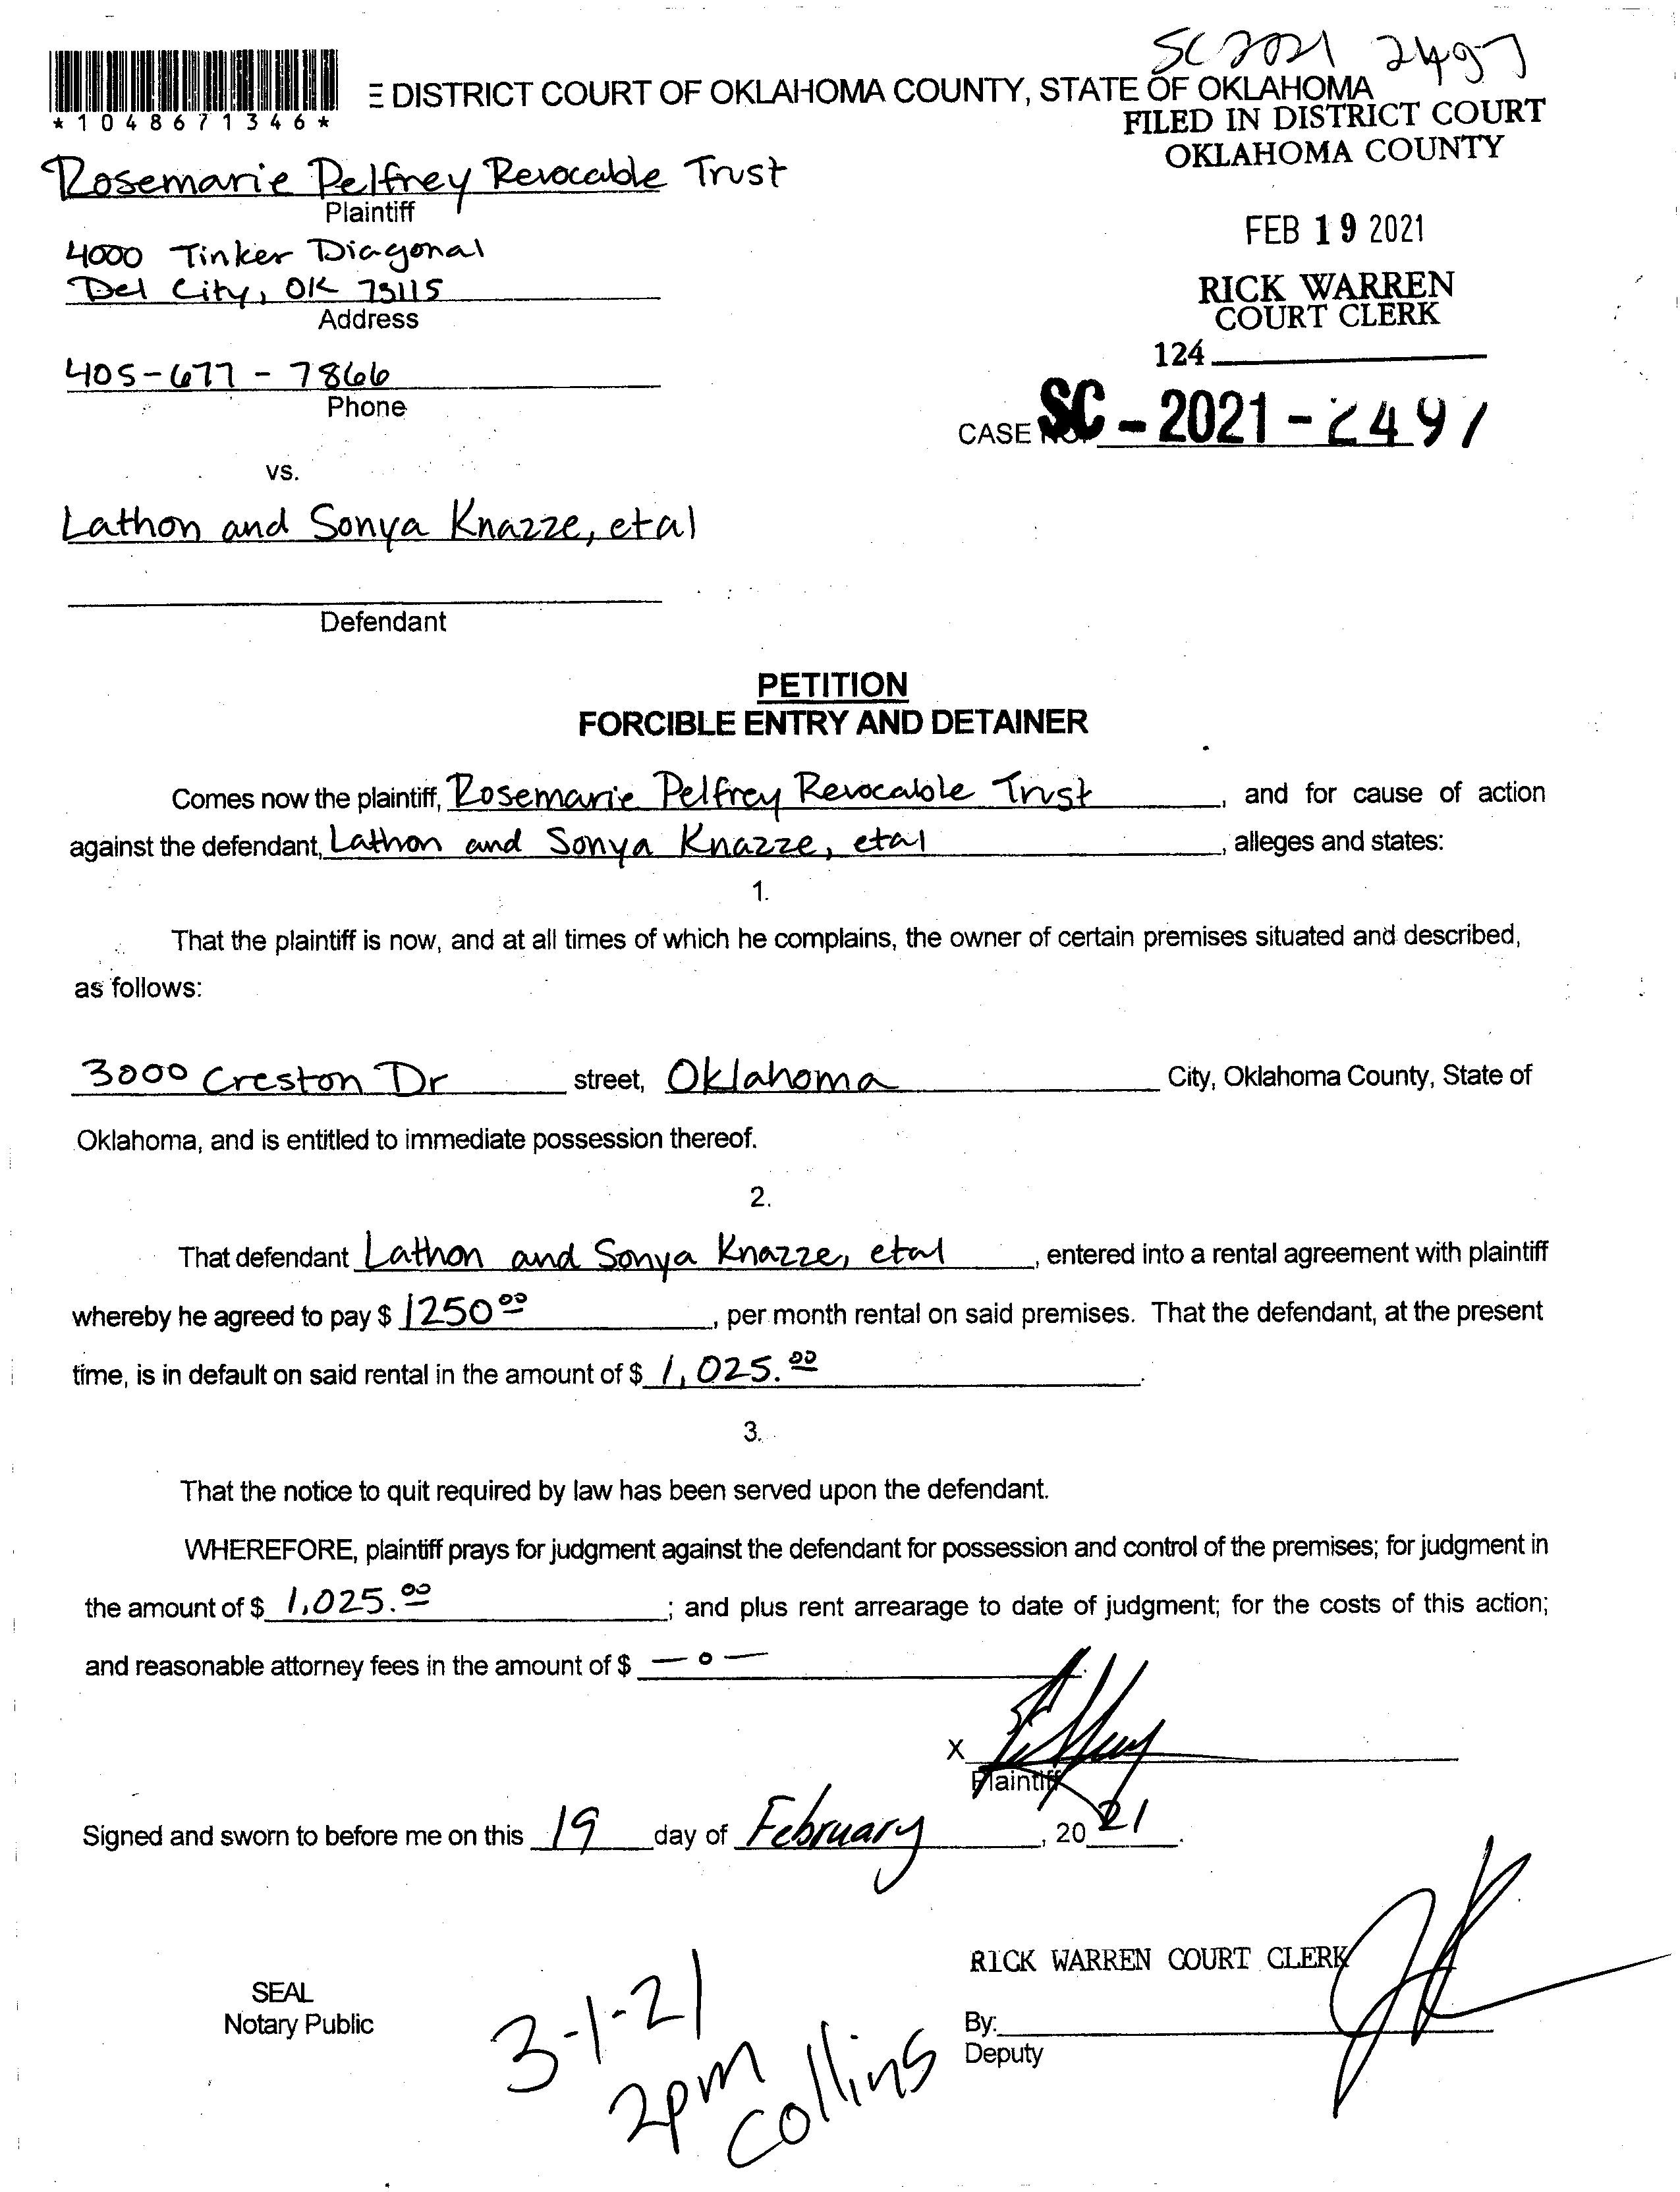 SC 2021 2497
E DISTRICT COURT OF OKLAHOMA COUNTY, STATE OF OKLAHOMA
*1048671346*
FILED IN DISTRICT COURT
OKLAHOMA COUNTY
Rosemarie Pelfrey Revocable Trust
Plaintiff
FEB 19 2021
4000 Tinker Diagonal
Del City, OK 73115
Address
RICK WARREN
COURT CLERK
124
405-677-7866
Phone
CASE NO. SC-2021-2497
vs.
Lathon and Sonya Knazze, etal
Defendant
PETITION
FORCIBLE ENTRY AND DETAINER
Comes now the plaintiff, Rosemarie Pelfrey Revocable Trust, and for cause of action
against the defendant, Lathon and Sonya Knazze, etal, alleges and states:
1.
That the plaintiff is now, and at all times of which he complains, the owner of certain premises situated and described,
as follows:
3000 Creston Dr street, Oklahoma City, Oklahoma County, State of
Oklahoma, and is entitled to immediate possession thereof.
2.
That defendant Lathon and Sonya Knazze, etal, entered into a rental agreement with plaintiff
whereby he agreed to pay $ 1250.00, per month rental on said premises. That the defendant, at the present
time, is in default on said rental in the amount of $ 1,025.00.
3.
That the notice to quit required by law has been served upon the defendant.
WHEREFORE, plaintiff prays for judgment against the defendant for possession and control of the premises; for judgment in
the amount of $ 1,025.00; and plus rent arrearage to date of judgment; for the costs of this action;
and reasonable attorney fees in the amount of $ — 0 —
X
Plaintiff
Signed and sworn to before me on this 19 day of February, 2021.
RICK WARREN COURT CLERK
SEAL
Notary Public
By:
Deputy
3-1-21
2pm
Collins